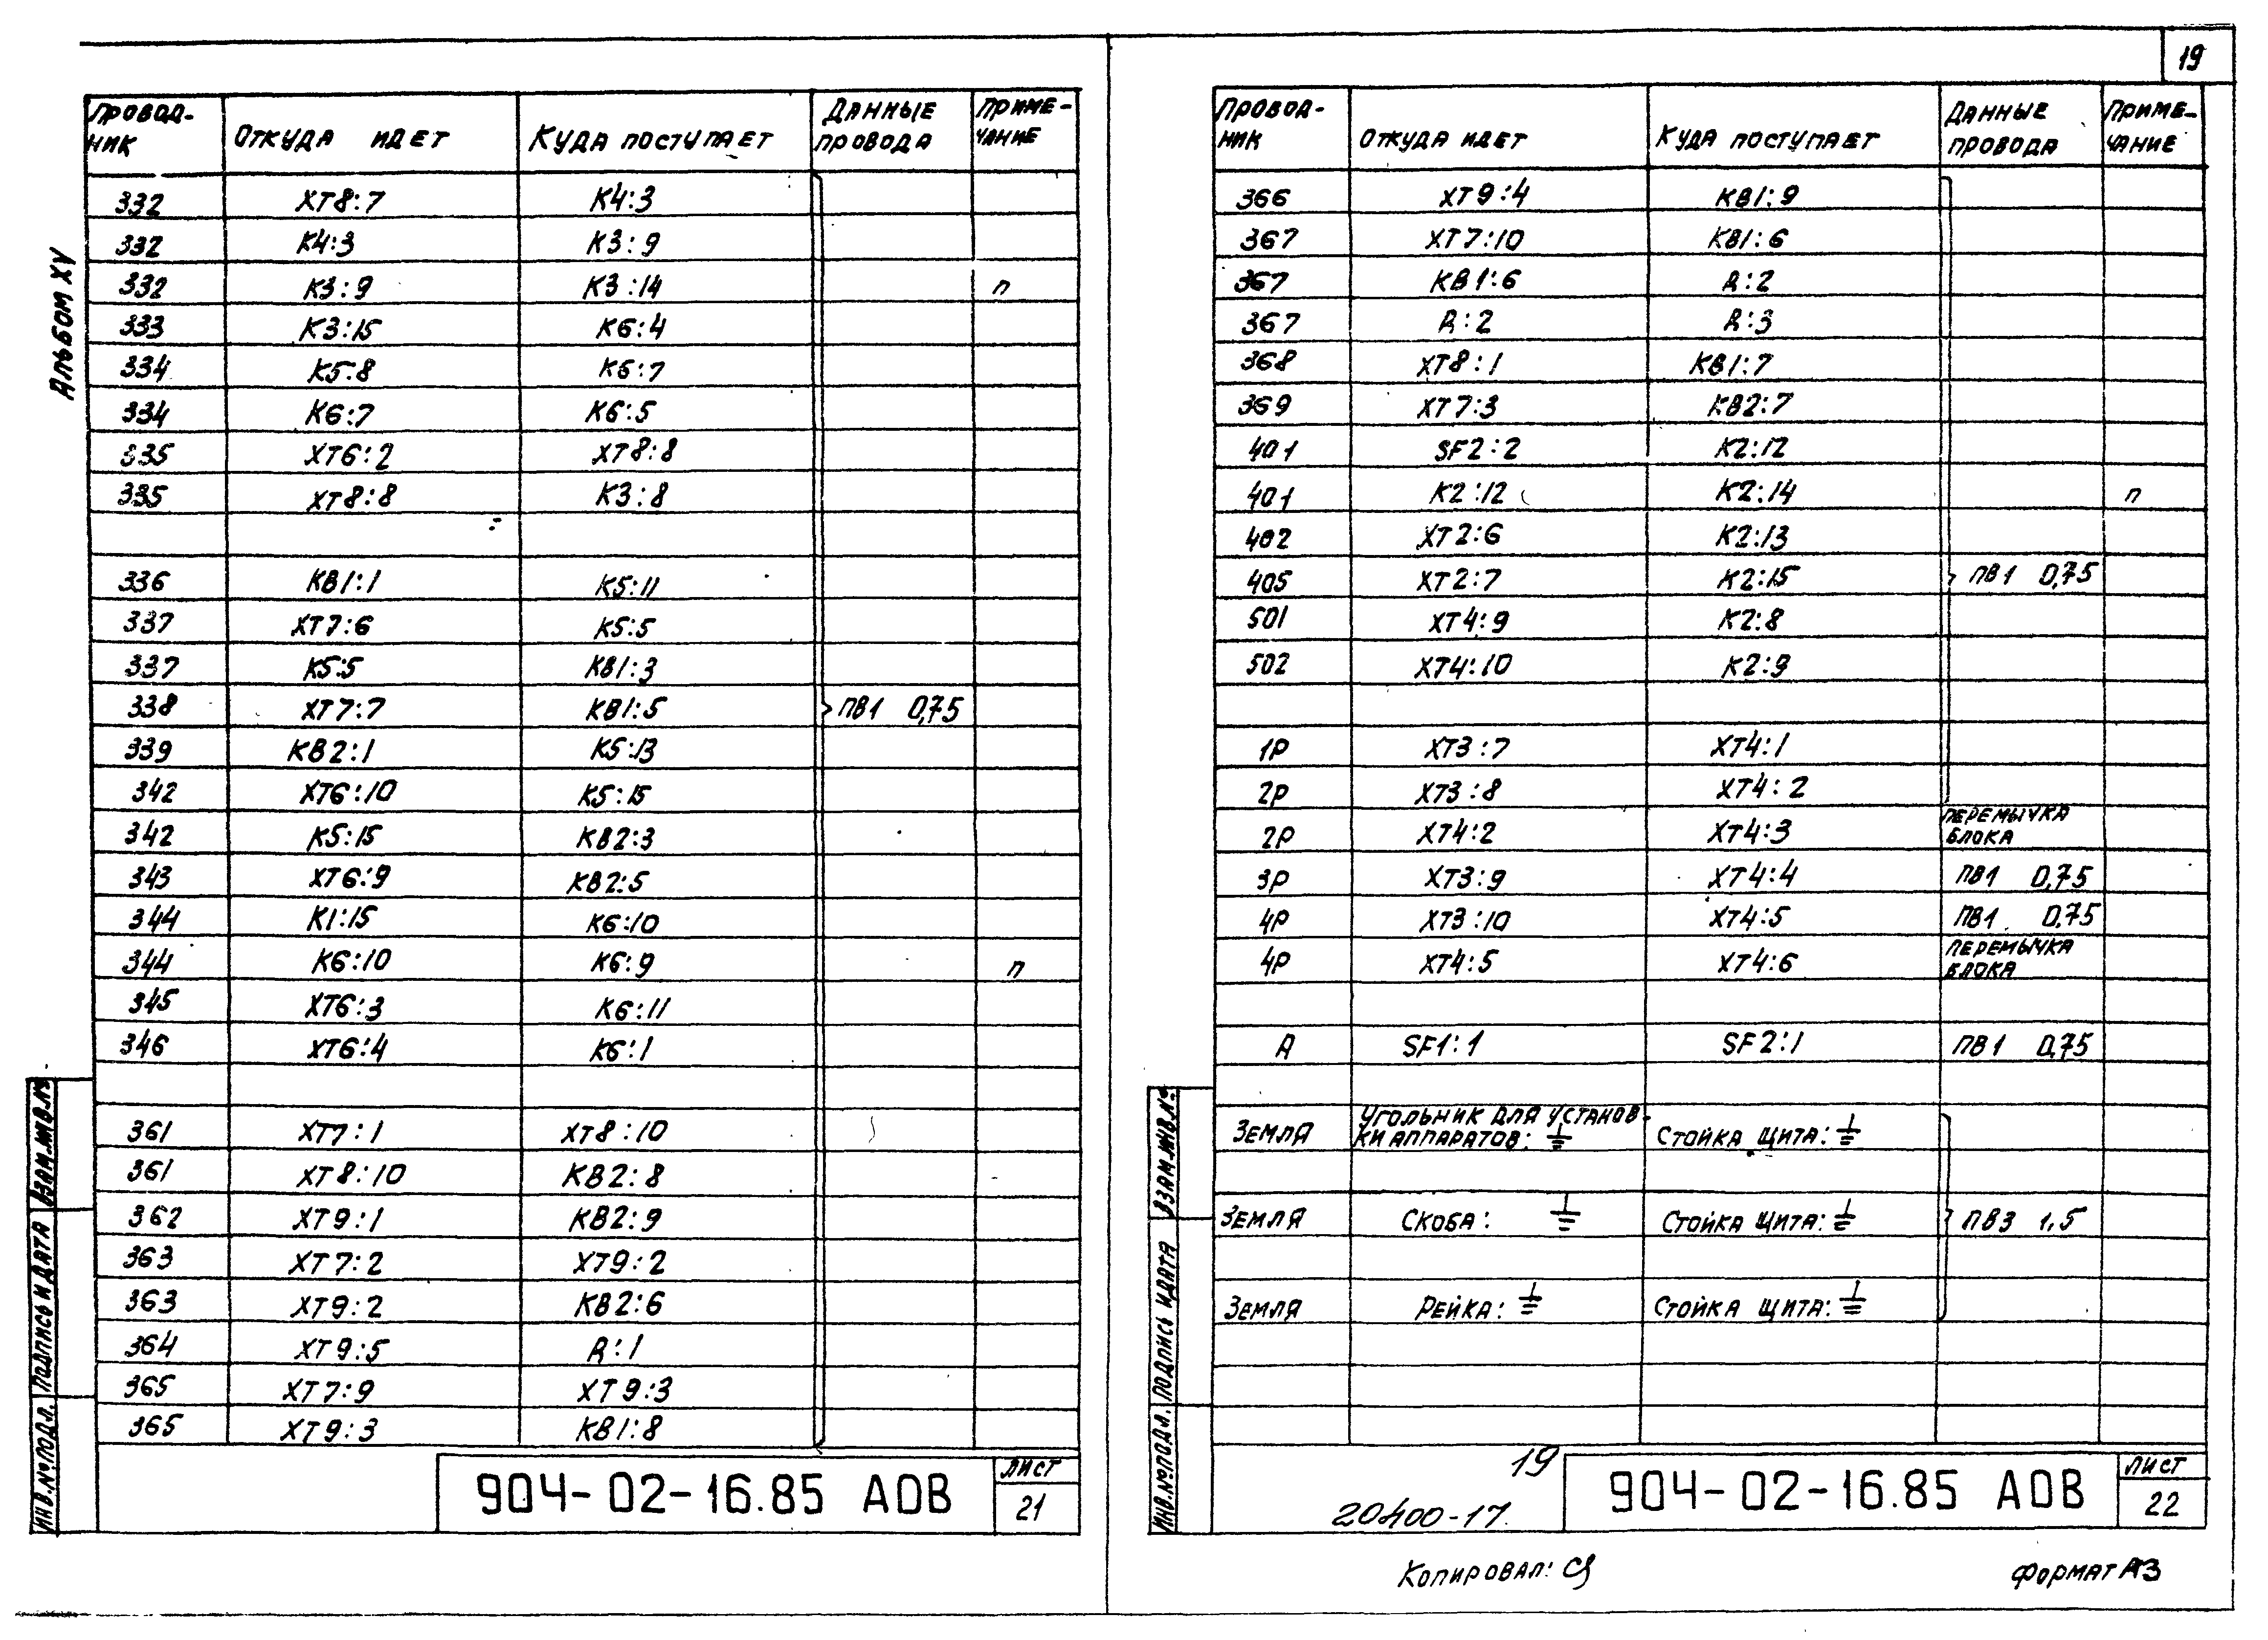 19
Альбом XV
Провод-ник Откуда идет Куда поступает Данные провода Приме-чание
332 XT8:7 K4:3
332 K4:3 K3:9
332 K3:9 K3:14 п
333 K3:15 K6:4
334 K5:8 K6:7
334 K6:7 K6:5
335 XT6:2 XT8:8
335 XT8:8 K3:8
336 KB1:1 K5:11
337 XT7:6 K5:5
337 K5:5 KB1:3
338 XT7:7 KB1:5 ПВ1 0,75
339 KB2:1 K5:13
342 XT6:10 K5:15
342 K5:15 KB2:3
343 XT6:9 KB2:5
344 K1:15 K6:10
344 K6:10 K6:9 п
345 XT6:3 K6:11
346 XT6:4 K6:1
361 XT7:1 XT8:10
361 XT8:10 KB2:8
362 XT9:1 KB2:9
363 XT7:2 XT9:2
363 XT9:2 KB2:6
364 XT9:5 Д:1
365 XT7:9 XT9:3
365 XT9:3 KB1:8
Инв.№подл. Подпись и дата Взам.инв.№
904-02-16.85 АОВ
Лист
21
Провод-ник Откуда идет Куда поступает Данные провода Приме-чание
366 XT9:4 KB1:9
367 XT7:10 KB1:6
367 KB1:6 Д:2
367 Д:2 Д:3
368 XT8:1 KB1:7
369 XT7:3 KB2:7
401 SF2:2 K2:12
401 K2:12 K2:14 п
402 XT2:6 K2:13
405 XT2:7 K2:15 ПВ1 0,75
501 XT4:9 K2:8
502 XT4:10 K2:9
1P XT3:7 XT4:1
2P XT3:8 XT4:2
2P XT4:2 XT4:3 Перемычка блока
3P XT3:9 XT4:4 ПВ1 0,75
4P XT3:10 XT4:5 ПВ1 0,75
4P XT4:5 XT4:6 Перемычка блока
А SF1:1 SF2:1 ПВ1 0,75
Земля Угольник для установ-ки аппаратов: ⏚ Стойка щита: ⏚
Земля Скоба: ⏚ Стойка щита: ⏚ ПВ3 1,5
Земля Рейка: ⏚ Стойка щита: ⏚
Инв.№подл. Подпись и дата Взам.инв.№
19
20400-17
904-02-16.85 АОВ
Лист
22
Копировал:
Формат А3